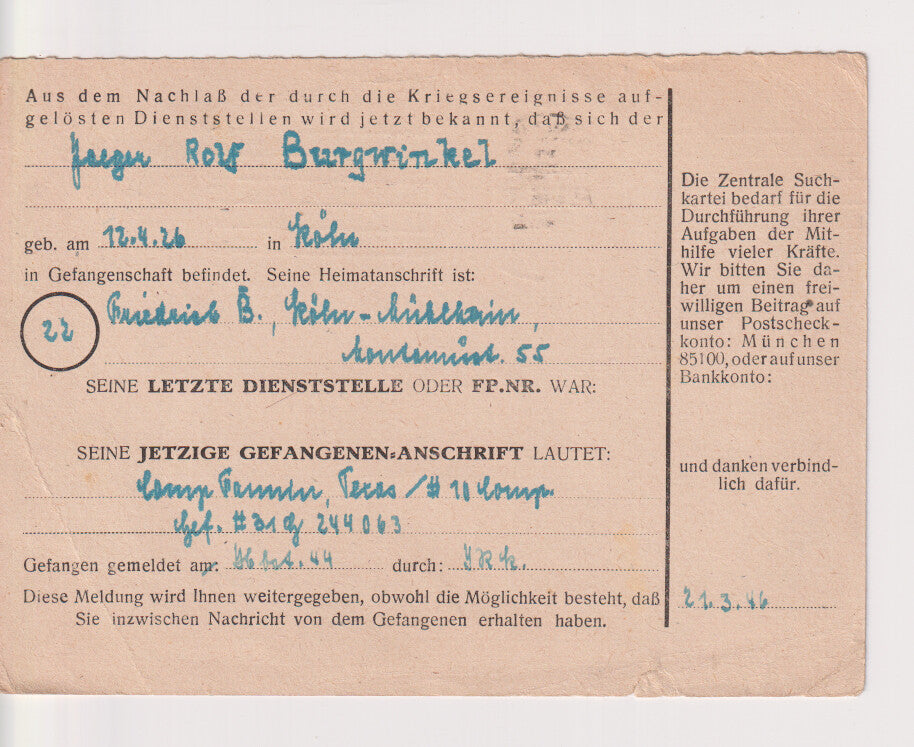 Aus dem Nachlaß der durch die Kriegsereignisse auf-
gelösten Dienststellen wird jetzt bekannt, daß sich der
Jaeger Rolf Burgwinkel
geb. am 12.4.26 in Köln
in Gefangenschaft befindet. Seine Heimatanschrift ist:
22 Friedrich B., Köln-Mühlheim,
55
SEINE LETZTE DIENSTSTELLE ODER FP.NR. WAR:
SEINE JETZIGE GEFANGENEN-ANSCHRIFT LAUTET:
Camp Fannin, Texas / # 10 Comp.
Gef. # 31G 244063
Gefangen gemeldet am: 44 durch: IRK.
Diese Meldung wird Ihnen weitergegeben, obwohl die Möglichkeit besteht, daß
Sie inzwischen Nachricht von dem Gefangenen erhalten haben.
Die Zentrale Such-
kartei bedarf für die
Durchführung ihrer
Aufgaben der Mit-
hilfe vieler Kräfte.
Wir bitten Sie da-
her um einen frei-
willigen Beitrag auf
unser Postscheck-
konto: München
85100, oder auf unser
Bankkonto:
und danken verbind-
lich dafür.
21.3.46